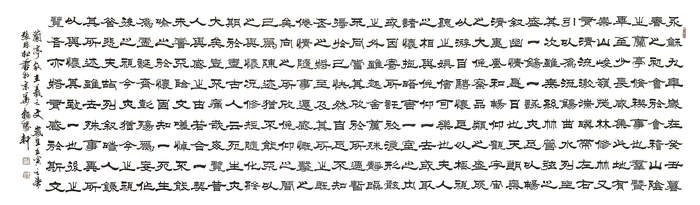 永和九年歲在癸丑暮
春之初會于會稽山陰
之蘭亭脩禊事也羣賢
畢至少長咸集此地有
崇山峻嶺茂林脩竹又
有清流激湍映帶左右
引以為流觴曲水列坐
其次雖無絲竹管弦之
盛一觴一詠亦足以暢
敘幽情是日也天朗氣
清惠風和暢仰觀宇宙
之大俯察品類之盛所
以遊目騁懷足以極視
聽之娛信可樂也夫人
之相與俯仰一世或取
諸懷抱悟言一室之內
或因寄所託放浪形骸
之外雖趣舍萬殊靜躁
不同當其欣於所遇暫
得於己快然自足不知
老之將至及其所之既
倦情隨事遷感慨係之
矣向之所欣俛仰之間
已為陳跡猶不能不以
之興懷況脩短隨化終
期於盡古人云死生亦
大矣豈不痛哉每覽昔
人興感之由若合一契
未嘗不臨文嗟悼不能
喻之於懷固知一死生
為虛誕齊彭殤為妄作
後之視今亦猶今之視
昔悲夫故列敘時人錄
其所述雖世殊事異所
以興懷其致一也後之
覽者亦將有感於斯文
蘭亭敘王羲之文